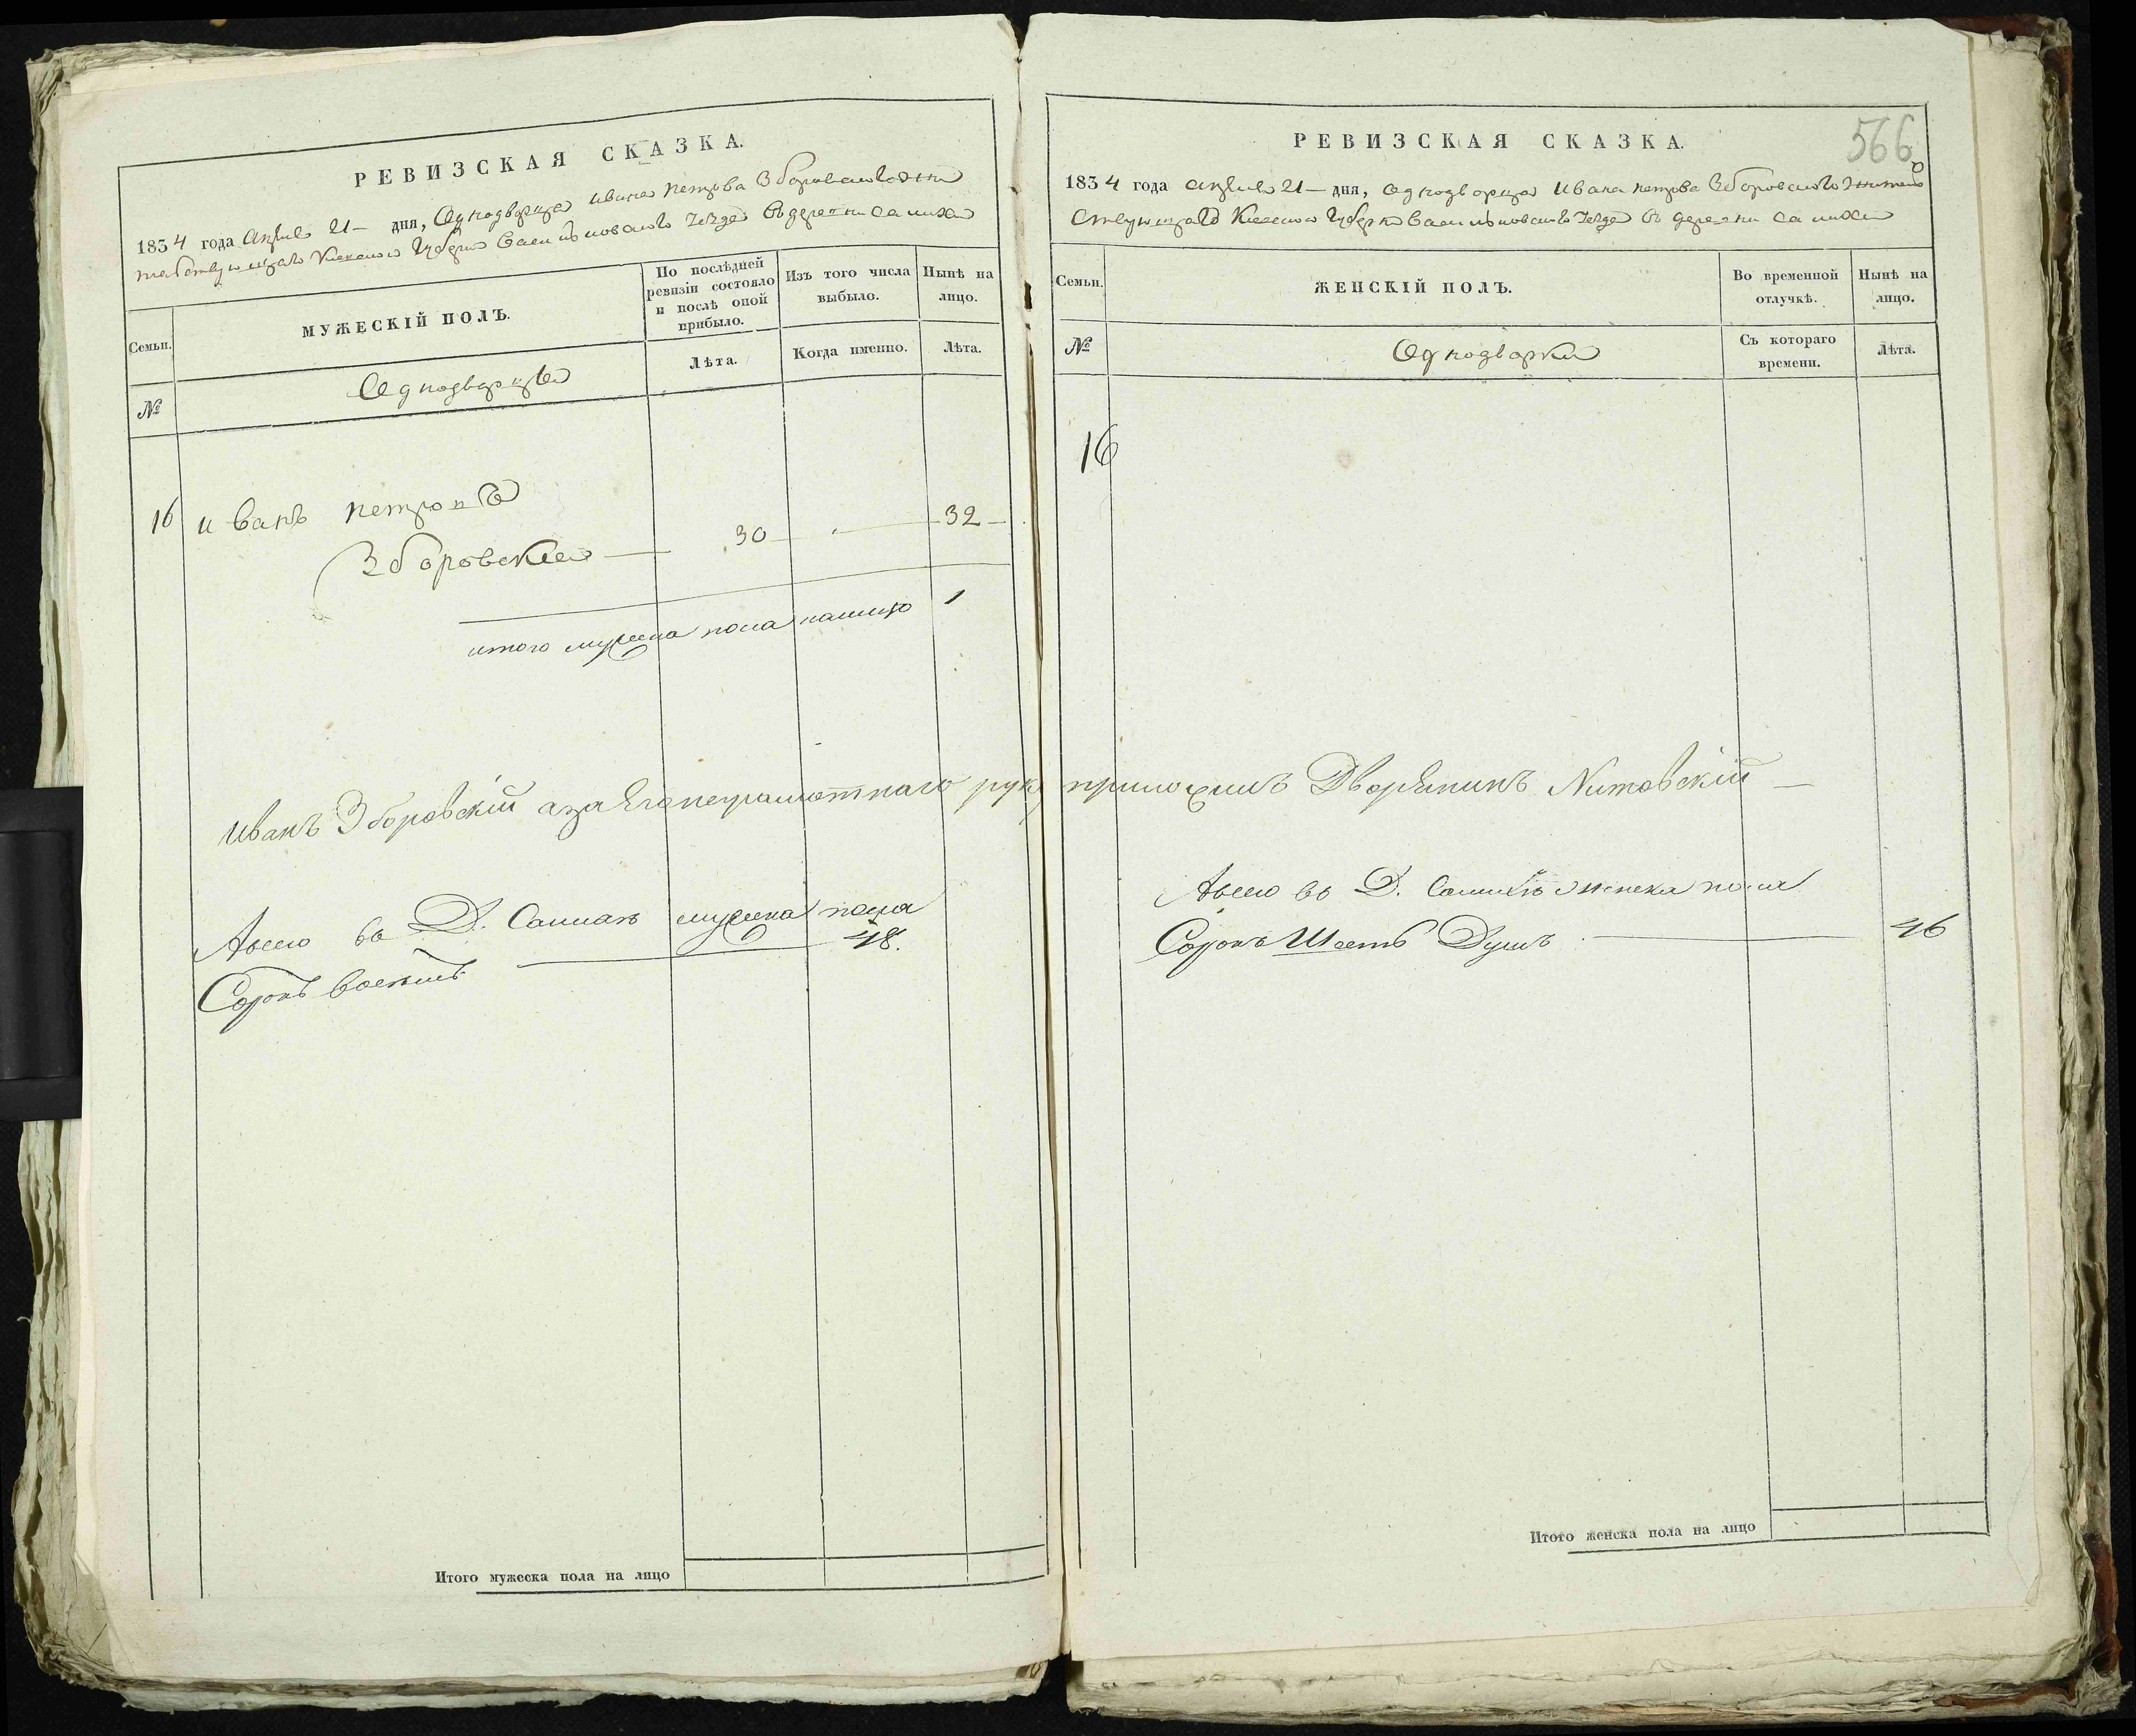 РЕВИЗСКАЯ СКАЗКА.
1834 года Апреля 21 – дня, Однодворца ивана петрова Зборовского жи
тельствующаго Киевской Губернии Васильковского уезда въ деревни Салихи
Семьи.
МУЖЕСКІЙ ПОЛЪ.
По послѣдней ревизіи состояло и послѣ оной прибыло.
Изъ того числа выбыло.
Нынѣ на лицо.
№
Однодворцы
Лѣта.
Когда именно.
Лѣта.
16 иванъ петровъ
Зборовский — 30 — 32 —
итого мужеска пола налицо 1
Иванъ Зборовскій а за Его неграмотнаго руку приложилъ Дворянинъ
Авсего въ Д. мужеска пола
Сорокъ восемь 48.
Итого мужеска пола на лицо
РЕВИЗСКАЯ СКАЗКА.
566
1834 года Апреля 21 – дня, однодворца Ивана петрова Зборовского житель
ствующаго Киевской Губернии Васильковского уезда въ деревни Салихи
Семьи.
ЖЕНСКІЙ ПОЛЪ.
Во временной отлучкѣ.
Нынѣ на лицо.
№
Однодворки
Съ котораго времени.
Лѣта.
16
Авсего въ Д. женска пола
Сорокъ Шесть Душъ — 46
Итого женска пола на лицо